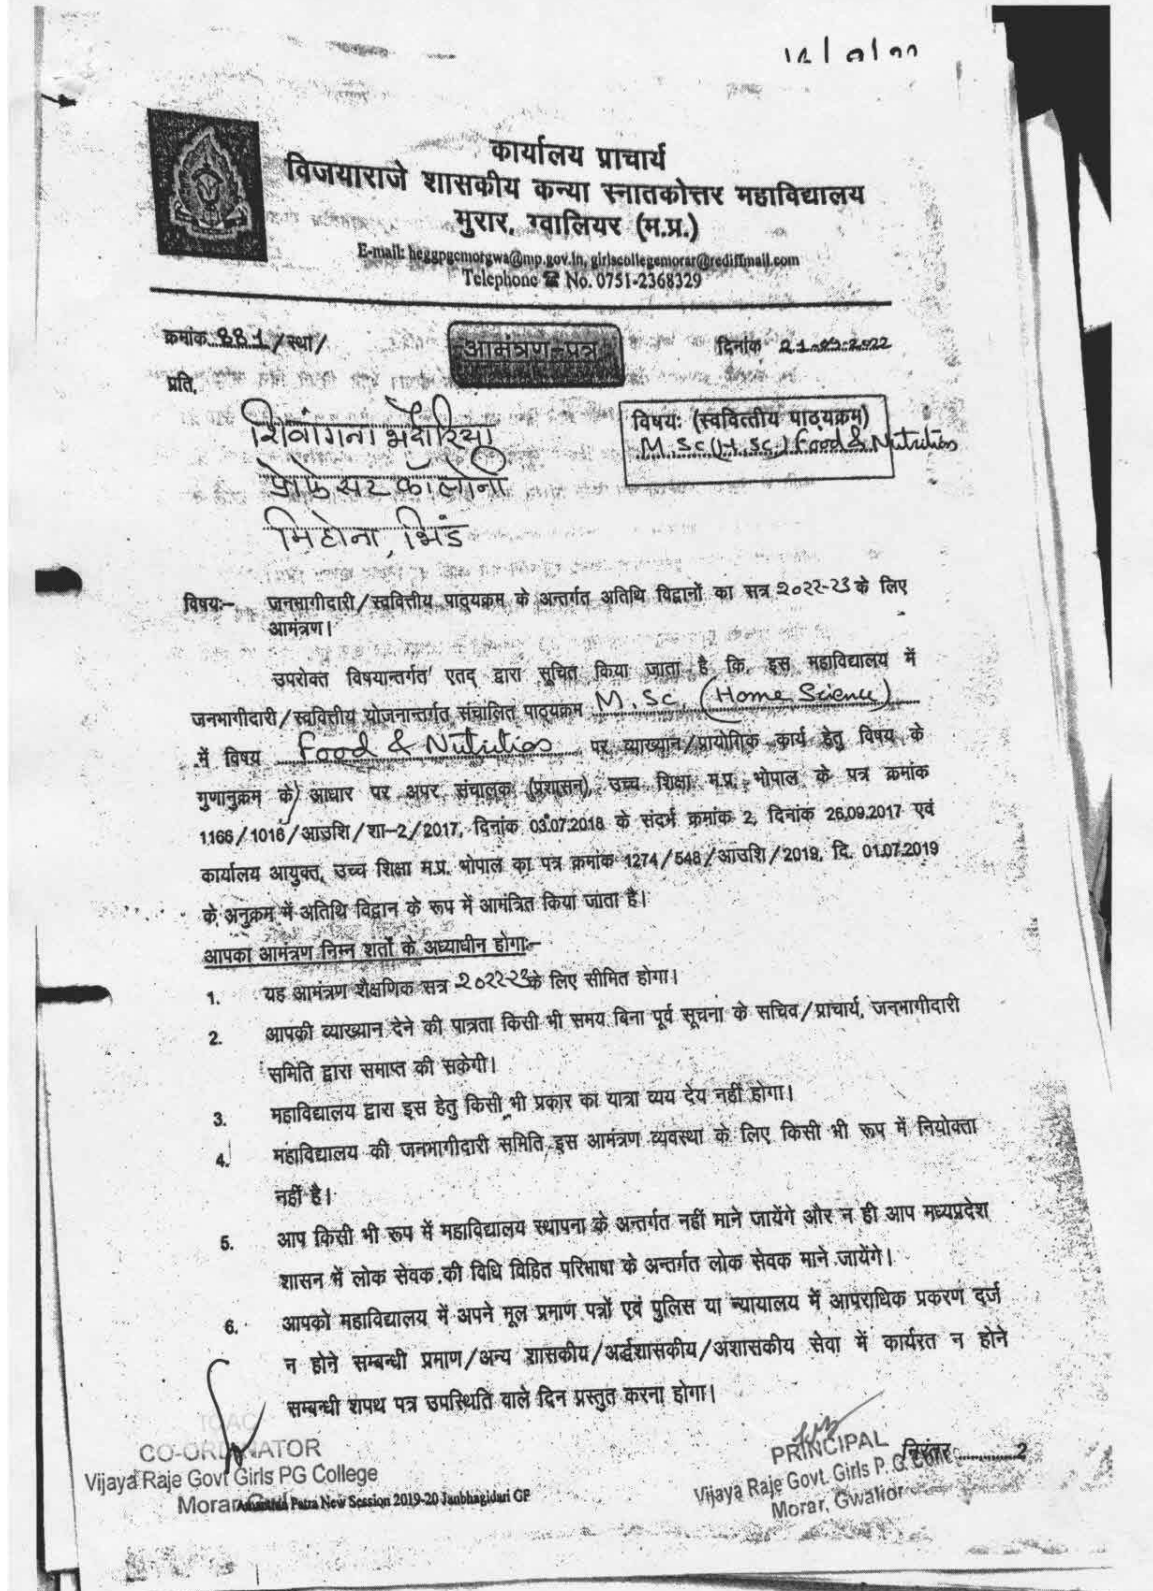 कार्यालय प्राचार्य
विजयाराजे शासकीय कन्या स्नातकोत्तर महाविद्यालय
मुरार, ग्वालियर (म.प्र.)
E-mail: heggpgcmorgwa@mp.gov.in, girlscollegemorar@rediffmail.com
Telephone ☎ No. 0751-2368329
क्रमांक 881/स्था/
आमंत्रण-पत्र
दिनांक 21-09-2022
प्रति,
शिवांगना भदौरिया
प्रोफेसर कॉलोनी
मिहोना, भिंड
विषयः (स्ववित्तीय पाठ्यक्रम)
M.Sc (H.Sc.) Food & Nutrition
विषयः– जनभागीदारी/स्ववित्तीय पाठ्यक्रम के अन्तर्गत अतिथि विद्वानों का सत्र 2022-23 के लिए
आमंत्रण।
उपरोक्त विषयान्तर्गत एतद् द्वारा सूचित किया जाता है कि, इस महाविद्यालय में
जनभागीदारी/स्ववित्तीय योजनान्तर्गत संचालित पाठ्यक्रम M.Sc. (Home Science)
में विषय Food & Nutrition पर व्याख्यान/प्रायोगिक कार्य हेतु विषय के
गुणानुक्रम के आधार पर अपर संचालक (प्रशासन), उच्च शिक्षा म.प्र. भोपाल के पत्र क्रमांक
1166/1016/आउशि/शा–2/2017, दिनांक 03.07.2018 के संदर्भ क्रमांक 2, दिनांक 26.09.2017 एवं
कार्यालय आयुक्त, उच्च शिक्षा म.प्र. भोपाल का पत्र क्रमांक 1274/548/आउशि/2019, दि. 01.07.2019
के अनुक्रम में अतिथि विद्वान के रूप में आमंत्रित किया जाता है।
आपका आमंत्रण निम्न शर्तों के अध्याधीन होगाः–
1. यह आमंत्रण शैक्षणिक सत्र 2022-23 के लिए सीमित होगा।
2. आपकी व्याख्यान देने की पात्रता किसी भी समय बिना पूर्व सूचना के सचिव/प्राचार्य, जनभागीदारी
समिति द्वारा समाप्त की सकेगी।
3. महाविद्यालय द्वारा इस हेतु किसी भी प्रकार का यात्रा व्यय देय नहीं होगा।
4. महाविद्यालय की जनभागीदारी समिति इस आमंत्रण व्यवस्था के लिए किसी भी रूप में नियोक्ता
नहीं है।
5. आप किसी भी रूप में महाविद्यालय स्थापना के अन्तर्गत नहीं माने जायेंगे और न ही आप मध्यप्रदेश
शासन में लोक सेवक की विधि विहित परिभाषा के अन्तर्गत लोक सेवक माने जायेंगे।
6. आपको महाविद्यालय में अपने मूल प्रमाण पत्रों एवं पुलिस या न्यायालय में आपराधिक प्रकरण दर्ज
न होने सम्बन्धी प्रमाण/अन्य शासकीय/अर्द्धशासकीय/अशासकीय सेवा में कार्यरत न होने
सम्बन्धी शपथ पत्र उपस्थिति वाले दिन प्रस्तुत करना होगा।
CO-ORDINATOR
Vijaya Raje Govt Girls PG College
Morar
Patra New Session 2019-20 Janbhagidari GF
PRINCIPAL
Vijaya Raje Govt. Girls P. G.
Morar, Gwalior
निरंतर............2